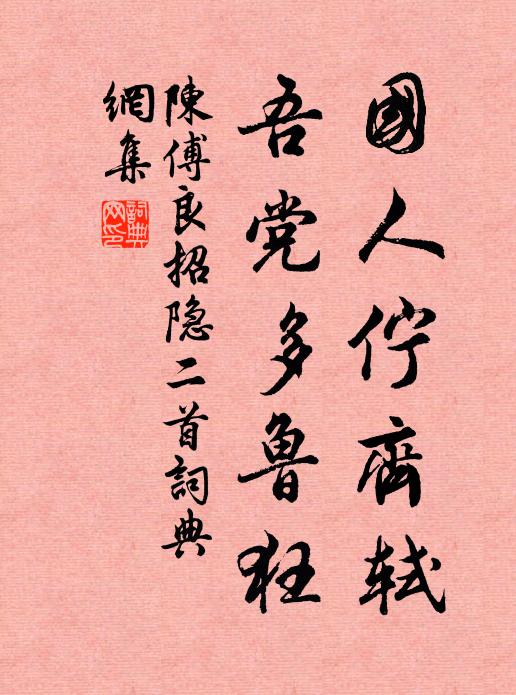 國人佇齊軾
吾党多魯狂
陳傅良招隐二首詞典
網集
詞典
网印